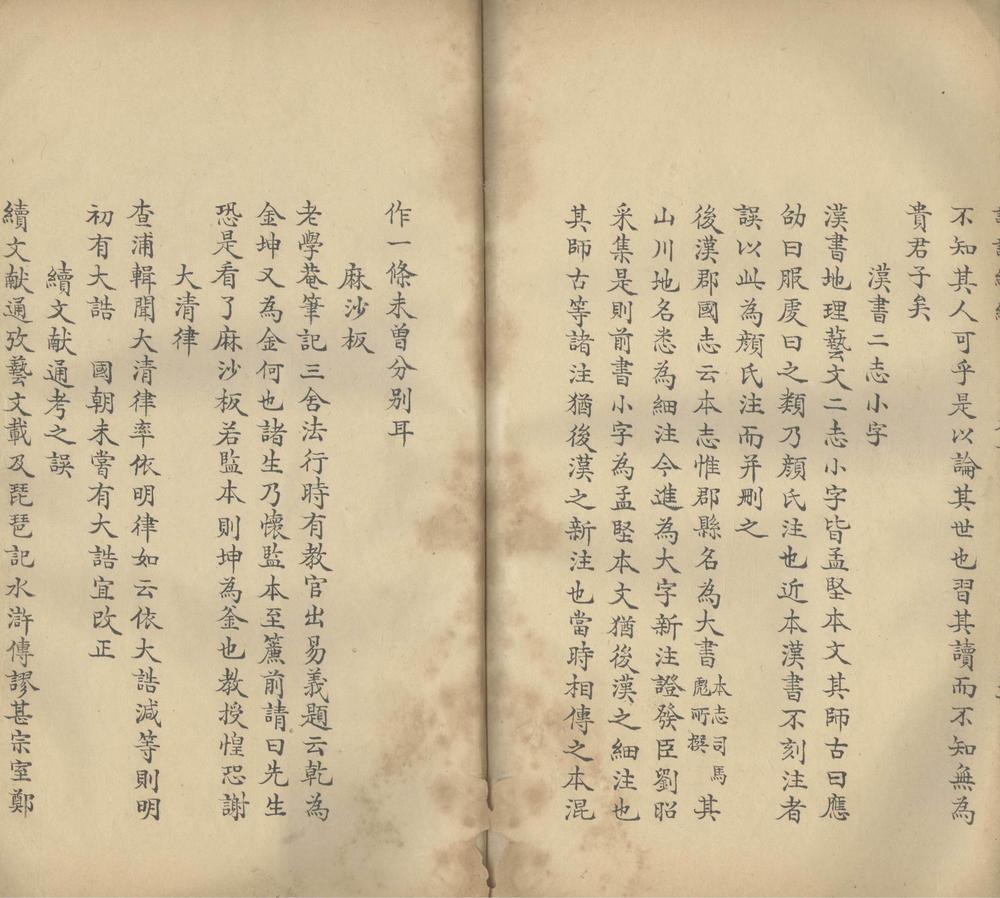 不知其人可乎是以論其世也習其讀而不知無為
貴君子矣
漢書二志小字
漢書地理藝文二志小字皆孟堅本文其師古曰應
劭曰服虔曰之類乃顏氏注也近本漢書不刻注者
誤以此為顏氏注而并刪之
後漢郡國志云本志惟郡縣名為大書本志司馬彪所撰其
山川地名悉為細注今進為大字新注證發臣劉昭
采集是則前書小字為孟堅本文猶後漢之細注也
其師古等諸注猶後漢之新注也當時相傳之本混
作一條未曾分别耳
麻沙板
老學菴筆記三舍法行時有教官出易義題云乾為
金坤又為金何也諸生乃懷監本至簾前請曰先生
恐是看了麻沙板若監本則坤為釜也教授惶恐謝
大清律
查浦輯聞大清律率依明律如云依大誥減等則明
初有大誥　國朝未嘗有大誥宜改正
續文献通考之誤
續文献通攷藝文載及琵琶記水滸傳謬甚宗室鄭